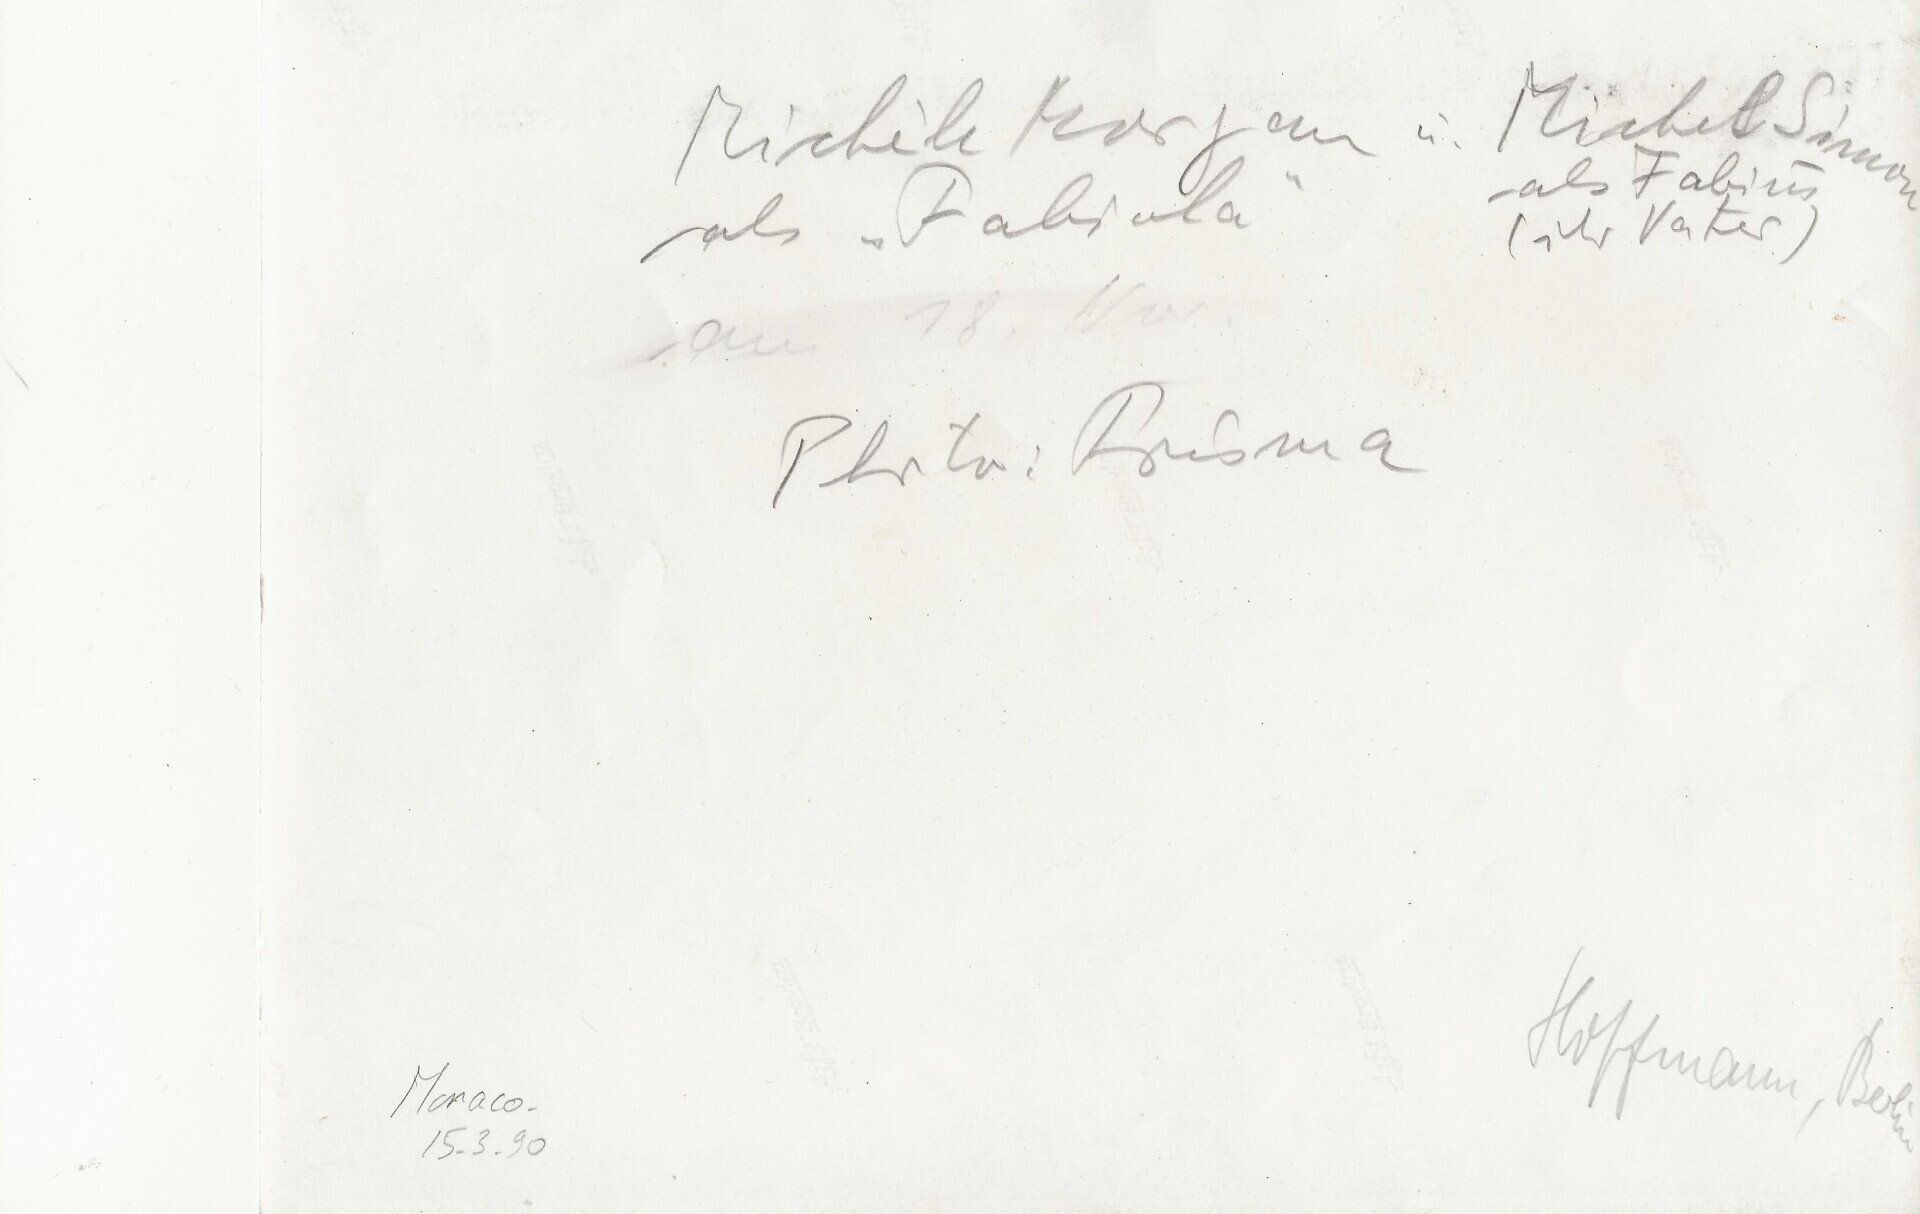 Michèle Morgan u. Michel Simon
als „Fabiola“
als Fabius
(ihr Vater)
am 18. Nov.
Photo: Prisma
Hoffmann, Berlin
Monaco.
15.3.90